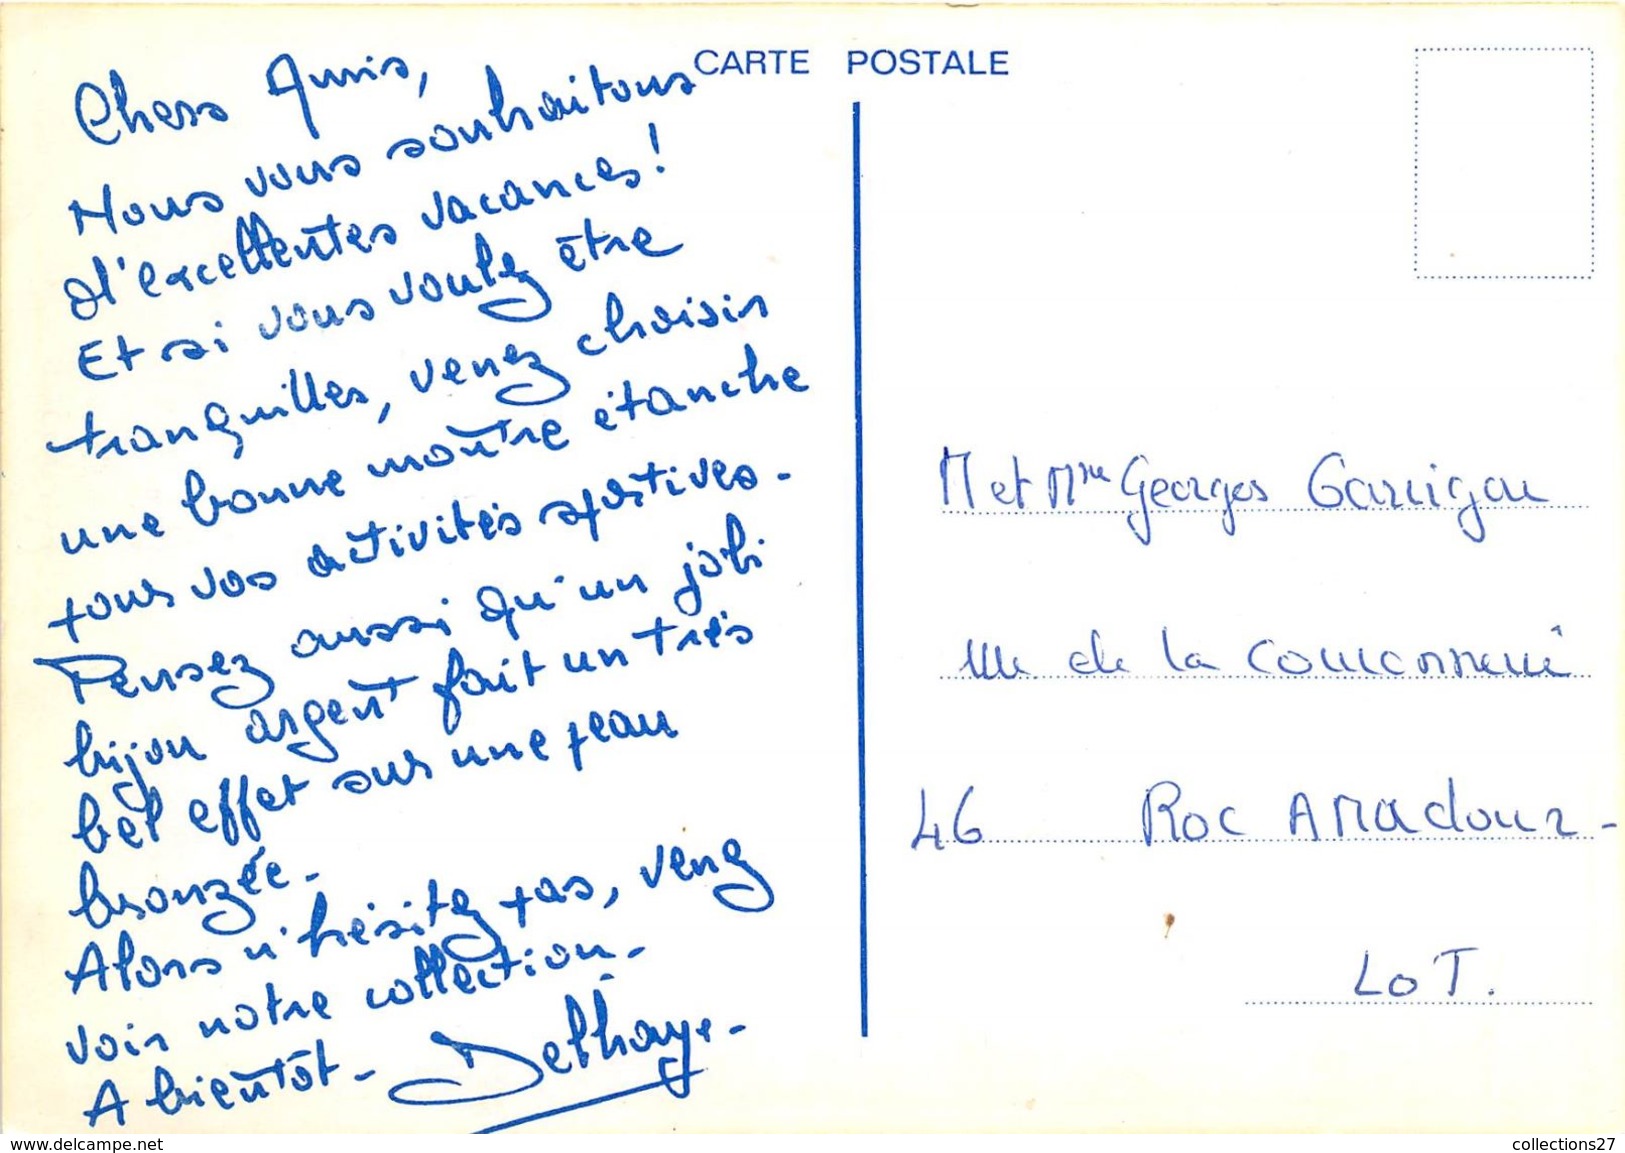 CARTE POSTALE
Chers Amis,
Nous vous souhaitons
d'excellentes vacances!
Et si vous voulez être
tranquilles, venez choisir
une bonne montre étanche
pour vos activités sportives.
Pensez aussi qu'un joli
bijou argent fait un très
bel effet sur une peau
bronzée.
Alors n'hésitez pas, venez
voir notre collection.
A bientôt - Delhaye.
M et Mme Georges Garrigou
de la
46 Roc Amadour -
LOT.
www.delcampe.net
collections27